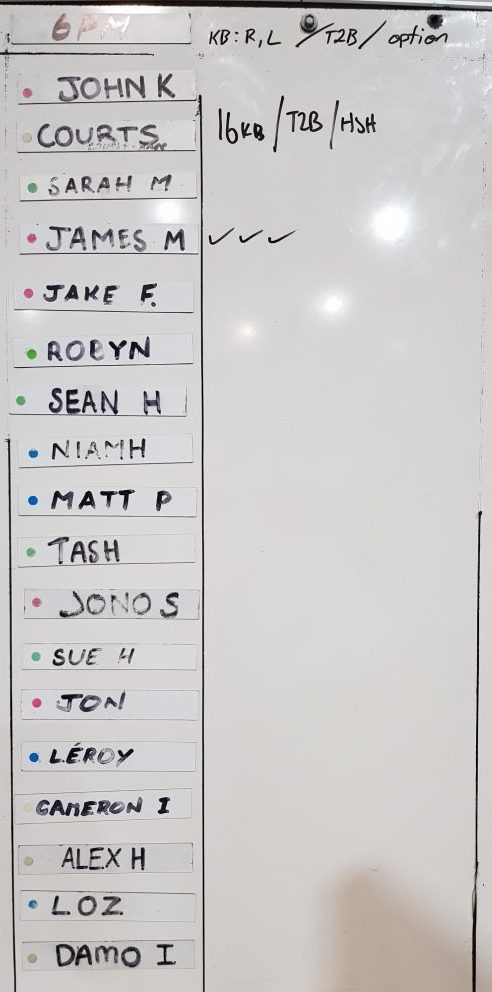 6PM KB: R, L / T2B / option
JOHN K
COURTS 16KB / T2B / HSH
SARAH M
JAMES M ✓ ✓ ✓
JAKE F.
ROBYN
SEAN H
NIAMH
MATT P
TASH
JONO S
SUE H
JON
LÉROY
CAMERON I
ALEX H
LOZ
DAMO I